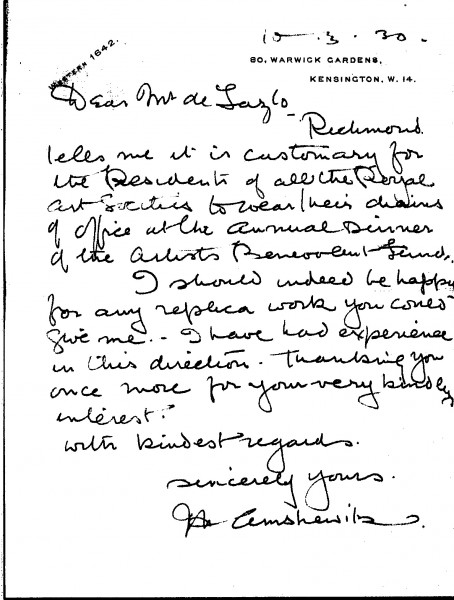 10-3.30.
WESTERN 1642.
80, WARWICK GARDENS,
KENSINGTON, W. 14.
Dear Mr de Lazlo
Richmond
tells me it is customary for
the Presidents of all the Royal
Art Societies to wear their chains
of office at the Annual Dinner
of the Artists Benevolent Fund.
I should indeed be happy
for any replica work you could
give me.- I have had experience
in this direction. Thanking you
once more for your very kindly
interest.
with kindest regards.
sincerely yours.
Amshewitz.